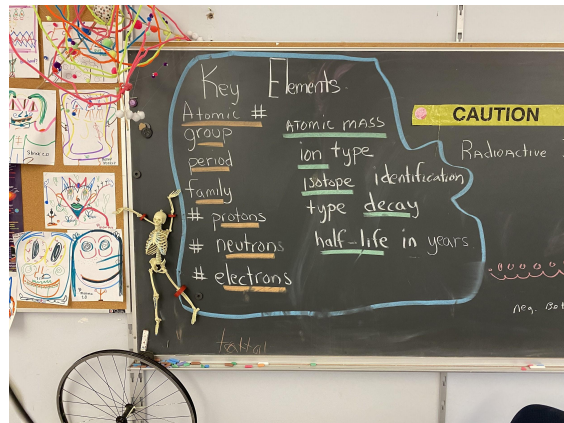 Key Elements
Atomic #
group
period
family
# protons
# neutrons
# electrons
ATOMIC MASS
ion type
isotope identification
type decay
half-life in years
CAUTION
RADIOACTIVE
neg.